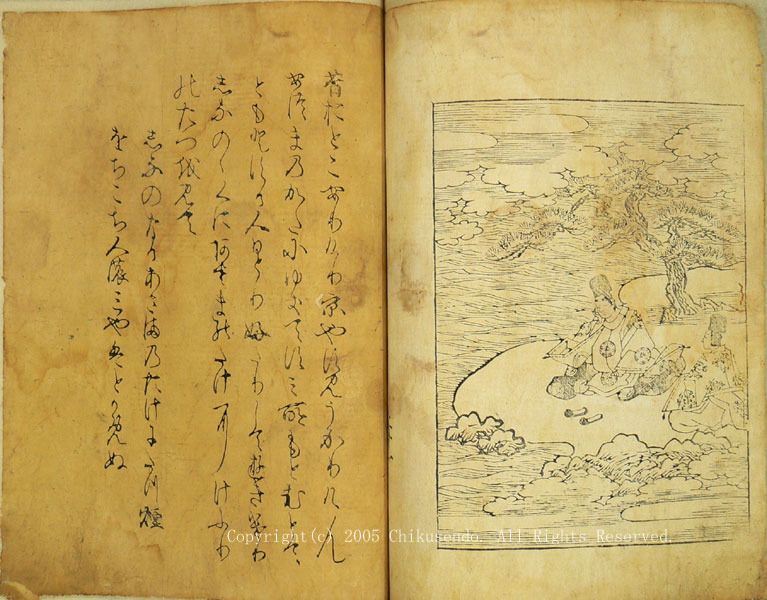 昔おとこありけり京やすみうかりけん
あつまのかたにゆきてすみ所もとむとて
ともとする人ひとりふたりしてゆきけり
しなのゝくにあさまのたけにけふり
のたつをみて
しなのなるあさまのたけにたつ煙
をちこち人のみやはとかめぬ
Copyright(c) 2005 Chikusendo. All Rights Reserved.